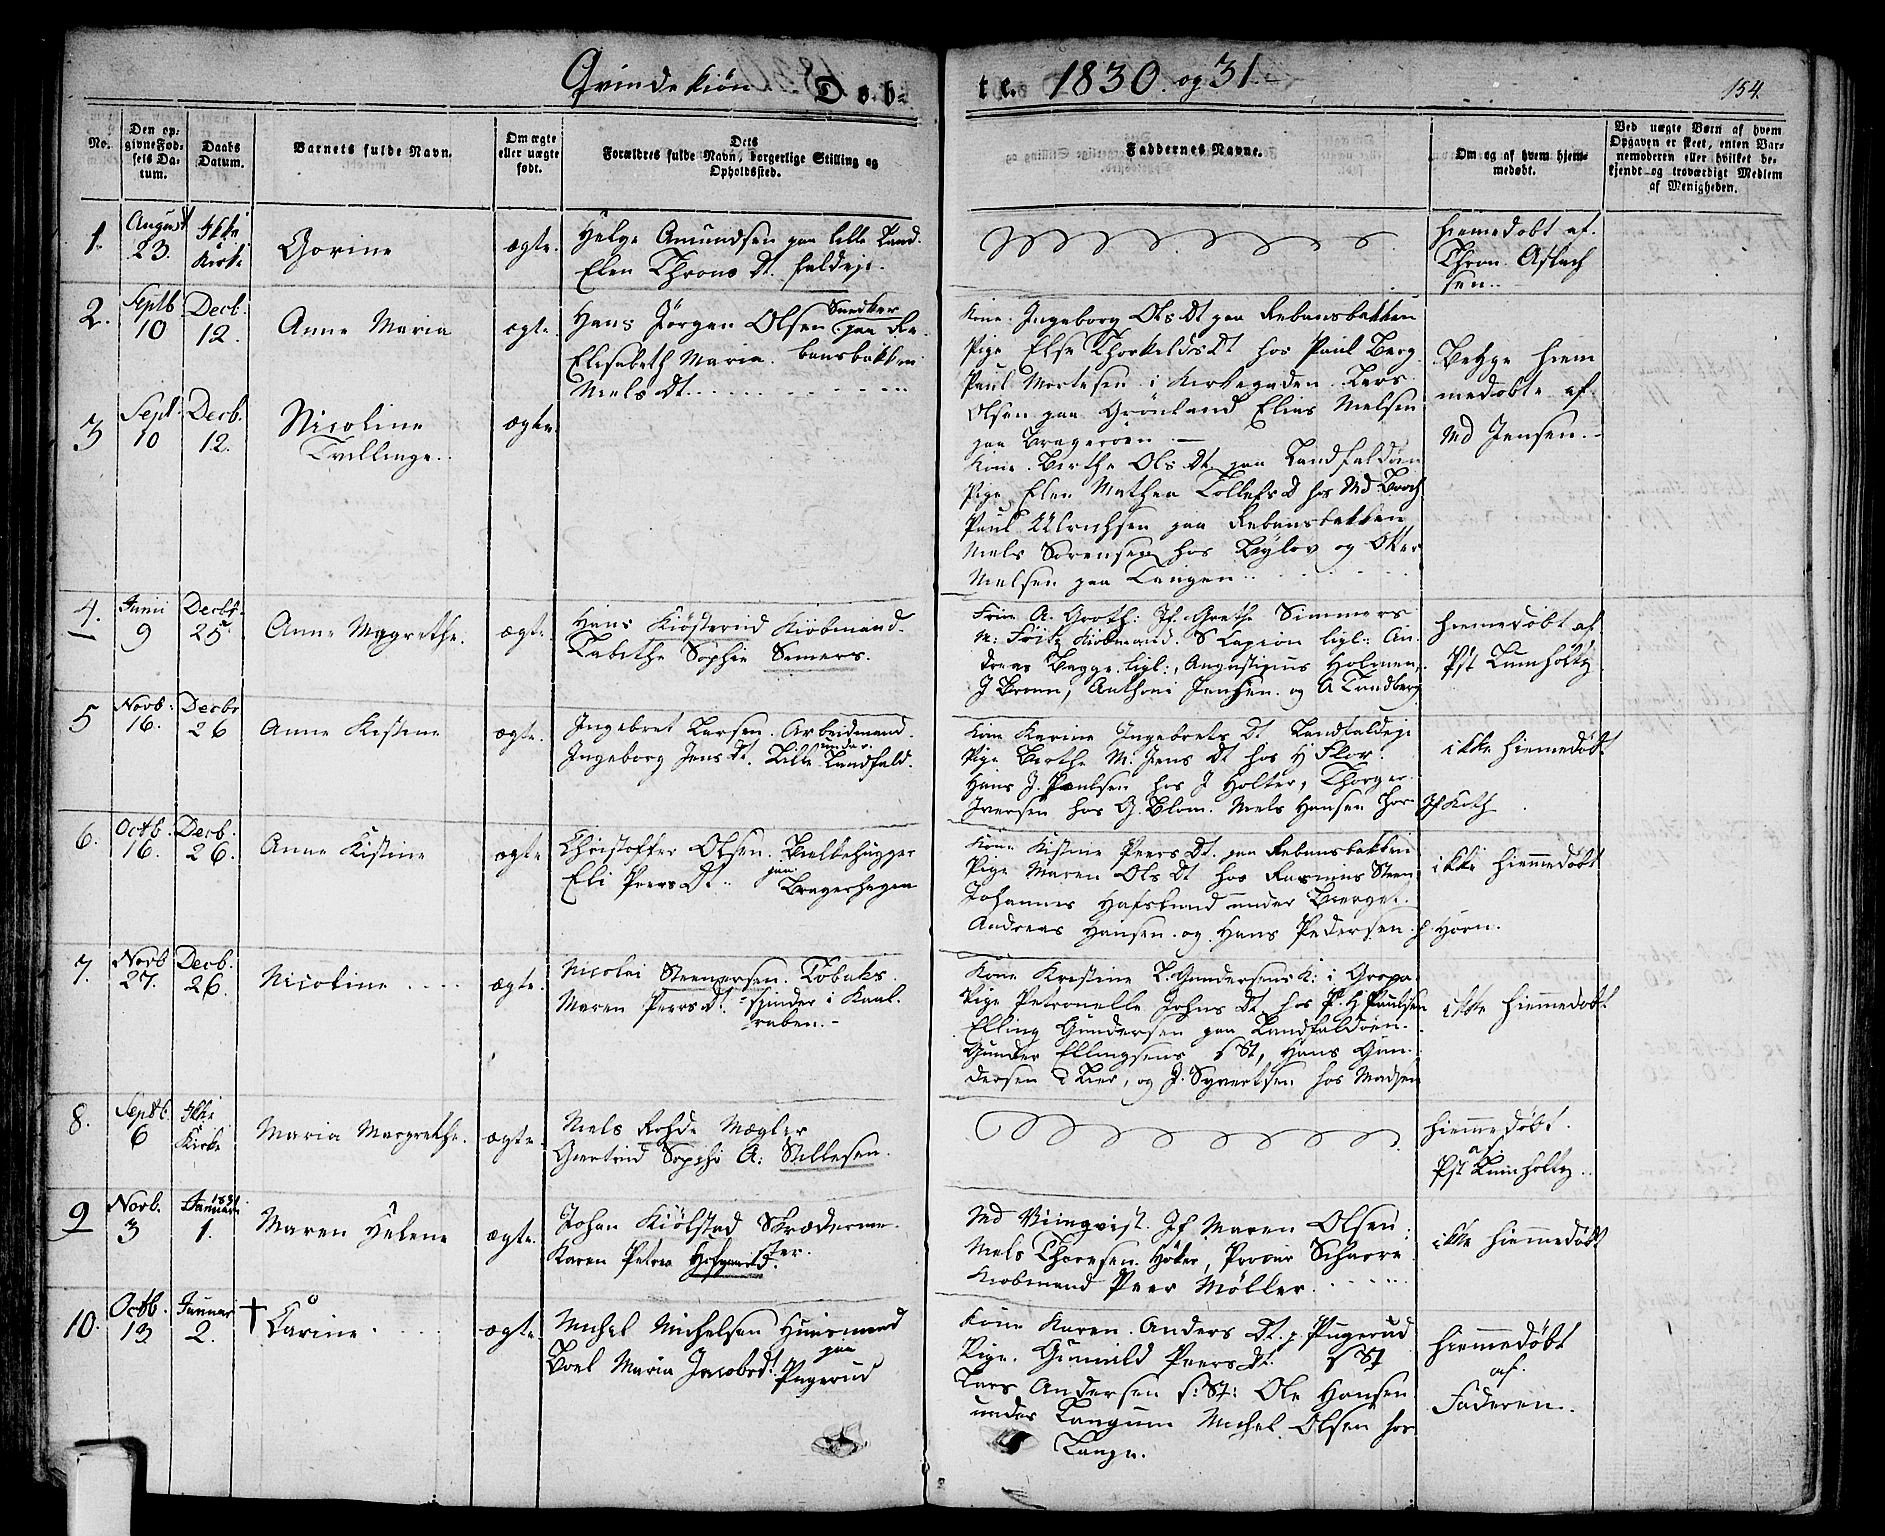 Qvindekiøn Døb=
te. 1830. og 31.
154.
No.
Den op-
givne Fød-
sels Da-
tum.
Daabs
Datum.
Barnets fulde Navn.
Om ægte
eller uægte
født.
Dets
Forældres fulde Navn, borgerlige Stilling og
Opholdssted.
Faddernes Navne.
Om og af hvem hjem-
medøbt.
Ved uægte Børn af hvem
Opgaven er skeet, enten Bar-
nemoderen eller hvilket be-
kjendt og troværdigt Medlem
af Menigheden.
1.
August
23.
Ikke
Kirke
Gorine
ægte.
Helge Amundsen paa lille Land-
Elen Throns Dt. faldeje.
hiemedøbt af.
Thron Aslach
sen.
2.
Septb
10
Decb.
12.
Anne Maria
ægte.
Hans Jørgen Olsen Snedker
paa Re-
Elisabeth Maria bansbakken
Niels Dt.
Kone Ingeborg Ols Dt paa Rebansbakken
Pige Else Thorkelds Dt hos Paul Berg
Paul Mortesen i Kirkegaden. Lars
Olsen paa Grønland Elias Nielsen
paa Bragerøen.
Begge hiem
medøbte af.
Md Jensen.
3
Sept.
10
Decb.
12.
Nicoline
Tvillinge.
ægte.
Kone Berthe Ols Dt. paa Landfaldøen
Pige Elen Mathea Tollefs D hos Md Boch
Paul Ulrichsen paa Rebansbakken
Niels Sørensen hos Bylov og
Nielsen paa Tangen
4.
Junii
9
Decbr.
25.
Anne Magrethe.
ægte.
Hans Kiøsterud Kiøbmand.
Tabithe Sophie Semers.
Frue A. Groth: Jf. Grethe Simmers
M: Fritz Kiøbmand. S ligl: An-
dreas Bagge ligl:, Augustinus Holmen,
J Brun, Anthoni Jensen. og A Tandberg
hiemedøbt af
Pst Lumholtz
5
Novb:
16.
Decbr
26
Anne Kistine
ægte.
Ingebret Larsen. Arbeidmand.
Ingeborg Jens Dt. under
Lille Landfald.
Kone Karine Ingebrets Dt Landfaldeje
Pige Berthe M. Jens Dt hos H Flor.
Hans J. Paulsen hos J Holter, Thorger
Iversen hos G. Blom. Niels Hansen hos Jf Koth.
ikke hiemedøbt
6.
Octb.
16.
Decb.
26.
Anne Kistine
ægte
Christoffer Olsen. Bielkehugger
Eli Peers Dt. paa
Bragerhagen
Kone Kistine Peers Dt. paa Rebansbakken
Pige Maren Ols Dt hos Rasmus Steen
Johannes Hafslund under Bierget.
Andreas Hansen. og Hans Pedersen h Horn.
ikke hiemmedøbt
7.
Novb
27.
Decb.
26.
Nicoline
ægte.
Nicolai Steenersen. Tobaks
Maren Peers Dt. =spinder i Kaal-
raben.
Kone Kristine L. Gundersens K: i
Pige Petronelle Johns Dt hos P. H Paulsen
Elling Gundersen paa Landfaldøen.
Gunder Ellingsens s St, Hans Gun-
dersen Lier, og J. Syvertsen hos Madsen
ikke hiemmedøbt
8.
Septb.
6
Ikke
Kirke
Maria Margrethe.
ægte.
Niels Rohde Mægler
Giertrud Sophi A: Nillesen.
hiemmedøbt.
af
Pst Lumholtz.
9
Novb.
3
1831
Januar
1.
Maren Helene
ægte.
Johan Kiølstad Skræderme-
ster.
Karen Petrea Hofgaard.
Md Jf Maren Olsen
Niels Thoresen Høker, Scharre
Kiøbmand Peer Møller.
ikke hiemmedøbt
10.
Octb.
13
Januar
2.
† Carine
ægte.
Michel Michelsen Huusmand
paa
Boel Maria Jacobsd. Pugerud
Kone Karen. Anders Dt. p Pugerud
Pige. Gunnild Peers Dt. s St
Lars Andersen s: St: Ole Hansen
under Langum Michel Olsen hos
Lange.
hiemmedøbt
af.
Faderen.